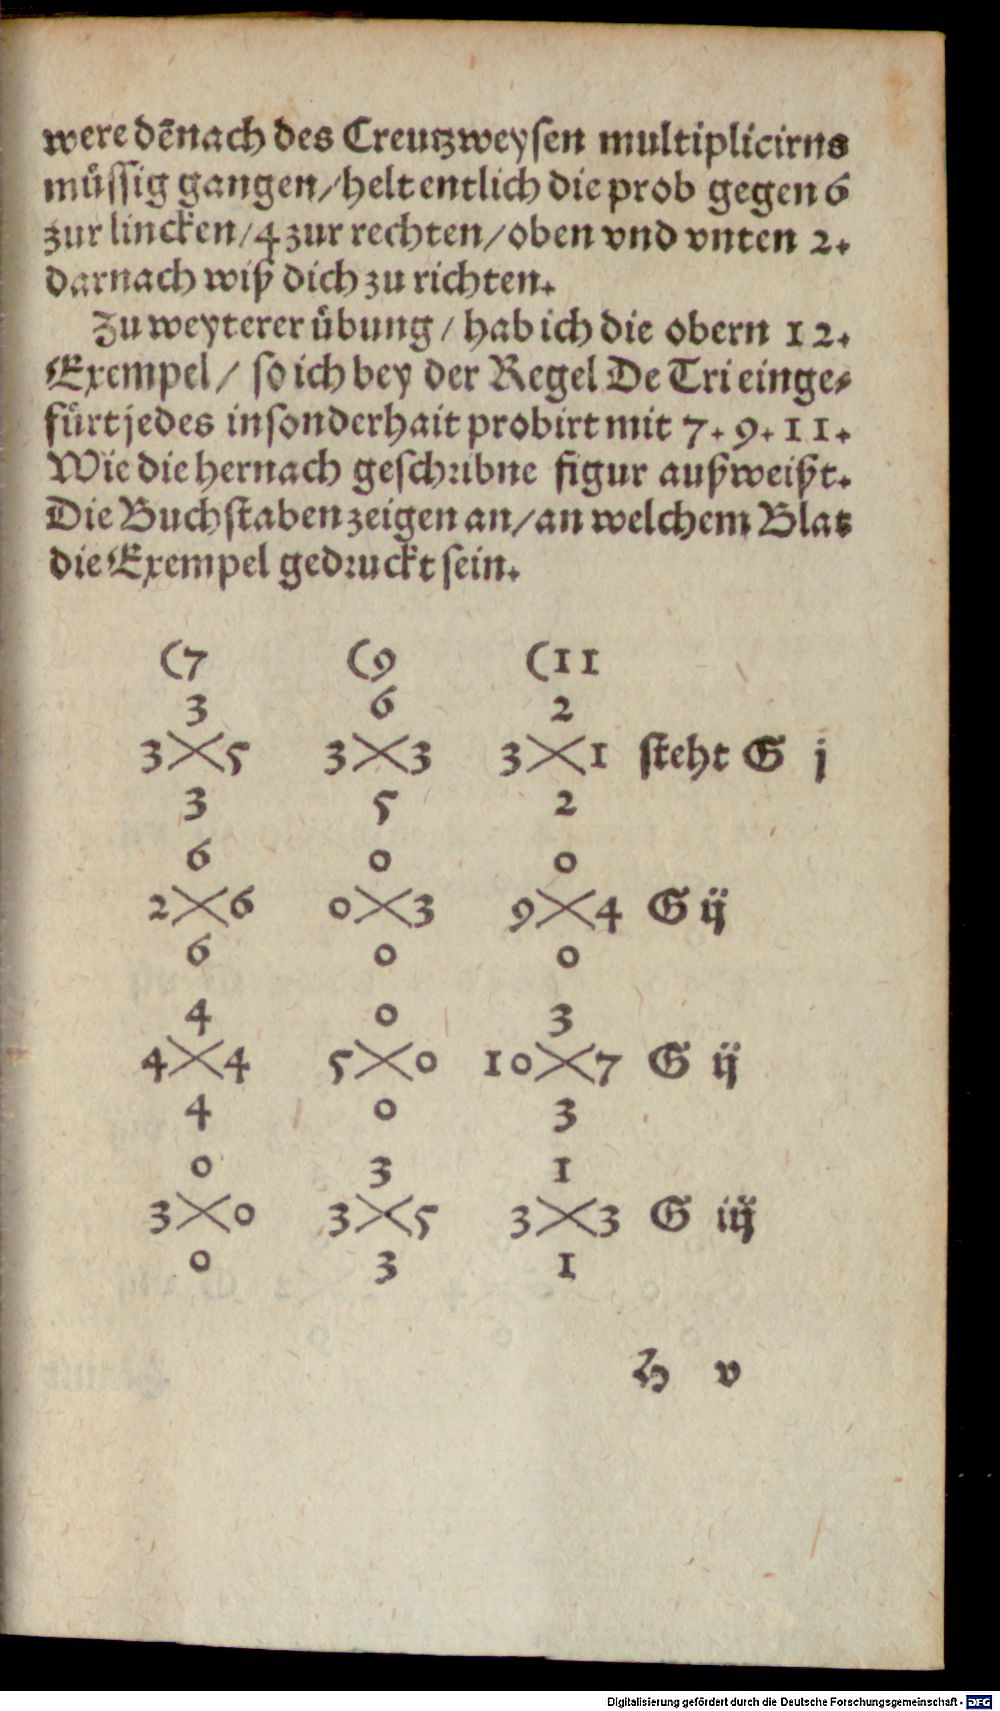 were dẽnach des Creutzweysen multiplicirns
müssig gangen/helt entlich die prob gegen 6
zur lincken/4 zur rechten/oben vnd vnten 2.
darnach wiß dich zu richten.
Zu weyterer übung/hab ich die obern 12.
Exempel/ so ich bey der Regel De Tri einge-
fürt jedes insonderhait probirt mit 7. 9. 11.
Wie die hernach geschribne figur außweißt.
Die Buchstaben zeigen an/an welchem Blat
die Exempel gedruckt sein.
(7 (9 (11
3 6 2
3╳5 3╳3 3╳1 steht G j
3 5 2
6 0 0
2╳6 0╳3 9╳4 G ij
6 0 0
4 0 3
4╳4 5╳0 10╳7 G ij
4 0 3
0 3 1
3╳0 3╳5 3╳3 G iij
0 3 1
H v
Digitalisierung gefördert durch die Deutsche Forschungsgemeinschaft - DFG